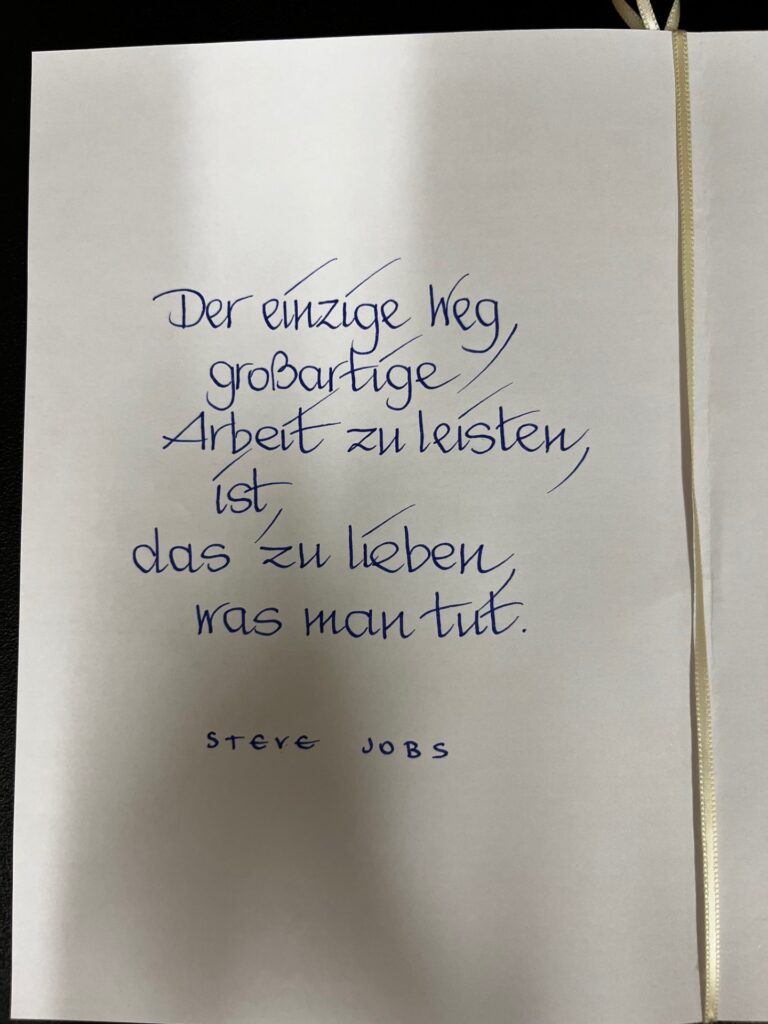 Der einzige Weg,
großartige
Arbeit zu leisten,
ist,
das zu lieben,
was man tut.
STEVE JOBS